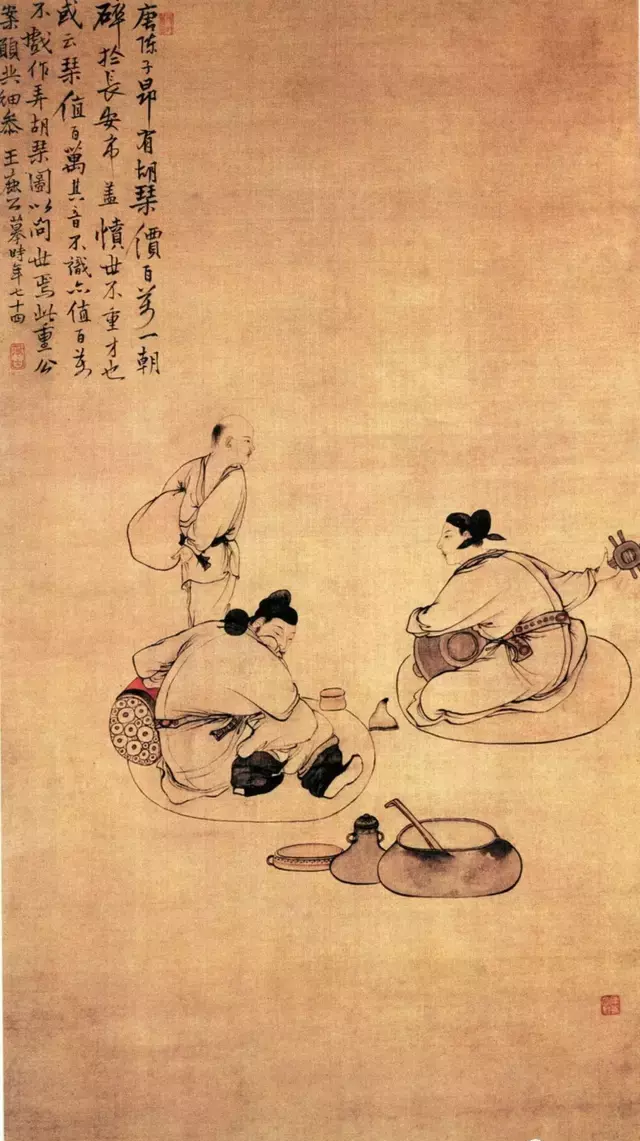 唐陈子昂有胡琹價百萬一朝
碎於長安市盖憤世不重才也
或云琹值百萬其音不識亦值百萬
不戲作弄胡琹圖以问世焉此重公
案願共细参 王 公摹時年七十四